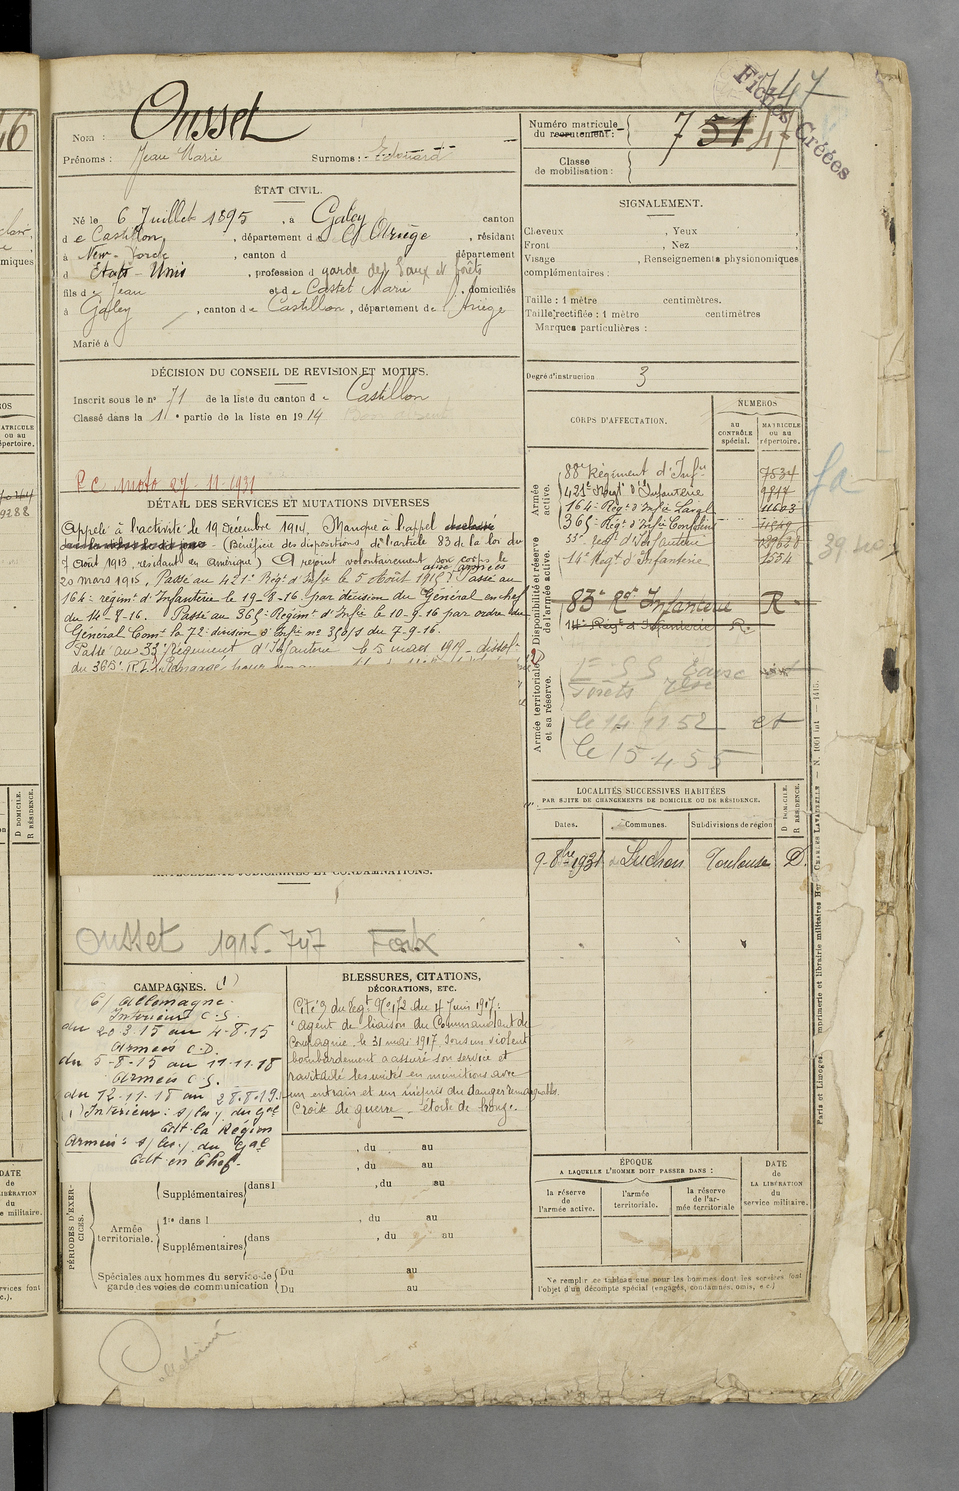 747
Fiches Créées
Nom : Ousset
Prénoms : Jean Marie Surnoms : Edouard
Numéro matricule du recrutement : 747
Classe de mobilisation :
ÉTAT CIVIL.
Né le 6 Juillet 1895, à Galey canton
de Castillon, département de l'Ariège, résidant
à New-York, canton d département
d Etats-Unis, profession d garde des Eaux et forêts
fils de Jean et de Castet Marie, domiciliés
à Galey, canton de Castillon, département de l'Ariège
Marié à
SIGNALEMENT.
Cheveux , Yeux ,
Front , Nez ,
Visage , Renseignements physionomiques
complémentaires :
Taille : 1 mètre centimètres.
Taille rectifiée : 1 mètre centimètres
Marques particulières :
Degré d'instruction 3
DÉCISION DU CONSEIL DE REVISION ET MOTIFS.
Inscrit sous le n° 71 de la liste du canton de Castillon
Classé dans la 1e partie de la liste en 1914
P C moto 27-11-1931
DÉTAIL DES SERVICES ET MUTATIONS DIVERSES
Appelé à l'activité le 19 Décembre 1914. Manque à l'appel
(Bénéficie des dispositions de l'article 83 de la loi du
7 Août 1913, résidant en Amérique) A rejoint volontairement son corps le
20 mars 1915. Passé au 421e Régt d'Infie le 5 Août 1915. Passé au
164e régimt d'Infanterie le 19-8-16 par décision du Général en chef
du 14-8-16. Passé au 365e Régimt d'Infie le 10-9-16 par ordre du
Général Comt la 72e division d'Infie n° du 7-9-16.
Passé au 33e Régiment d'Infanterie le 5 mars 1917
du 365e R.I.
CORPS D'AFFECTATION.
NUMÉROS
au CONTRÔLE spécial.
MATRICULE ou au répertoire.
Armée active.
88e Régiment d'Infie 7534
421e Régt d'Infanterie 9817
164e Régt d'Infie 11603
365e Régt d'Infie
33e Régt d'Infanterie
14e Régt d'Infanterie
Disponibilité et réserve de l'armée active.
83e Rgt Infanterie R
14e Régt d'Infanterie R.
Armée territoriale et sa réserve.
Forêts
le 14 11 52
le 15-4-55
LOCALITÉS SUCCESSIVES HABITÉES
PAR SUITE DE CHANGEMENTS DE DOMICILE OU DE RÉSIDENCE.
Dates. Communes. Subdivisions de région D DOMICILE. R RÉSIDENCE.
9-8bre 1931 Luchon Toulouse D.
ANTÉCÉDENTS JUDICIAIRES ET CONDAMNATIONS.
Ousset 1915-747 Foix
CAMPAGNES. (1)
C/ Allemagne
Intérieur C.S.
du 20-3-15 au 4-8-15
Armées C.D.
du 5-8-15 au 11-11-18
Armées C.S.
du 12-11-18 au 28-8-19
(1) Intérieur : s/les / du Gal
Cdt la Région
Armées : s/les / du Gal
Cdt en Chef.
BLESSURES, CITATIONS,
DÉCORATIONS, ETC.
Cité du Régt N° 172 du 4 Juin 1917 :
"Agent de liaison du Commandant de
Compagnie le 31 mai 1917. Sous un violent
bombardement a assuré son service et
ravitaillé les unités en munitions avec
un entrain et un mépris du danger remarquables.
Croix de guerre - étoile de bronze.
, du au
, du au
PÉRIODES D'EXERCICES.
Supplémentaires dans l , du au
Armée territoriale.
1re dans l , du au
Supplémentaires dans , du au
Spéciales aux hommes du service de garde des voies de communication
Du au
Du au
ÉPOQUE
A LAQUELLE L'HOMME DOIT PASSER DANS :
la réserve de l'armée active.
l'armée territoriale.
la réserve de l'armée territoriale
DATE de LA LIBÉRATION du service militaire.
Ne remplir ce tableau que pour les hommes dont les services font
l'objet d'un décompte spécial (engagés, condamnés, omis, etc.)
Paris et Limoges. Imprimerie et librairie militaires Henri CHARLES-LAVAUZELLE